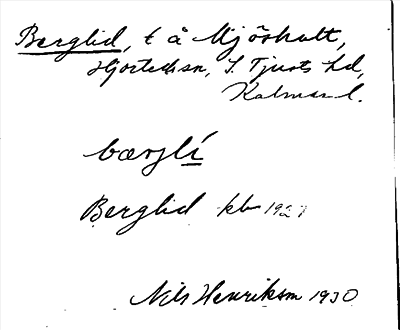 Berglid, t å Mjöshult,
Hjorted sn, S. Tjusts hd,
Kalmar l.
bærjlí
Berglid kb 1927
Nils Henrikson 1930